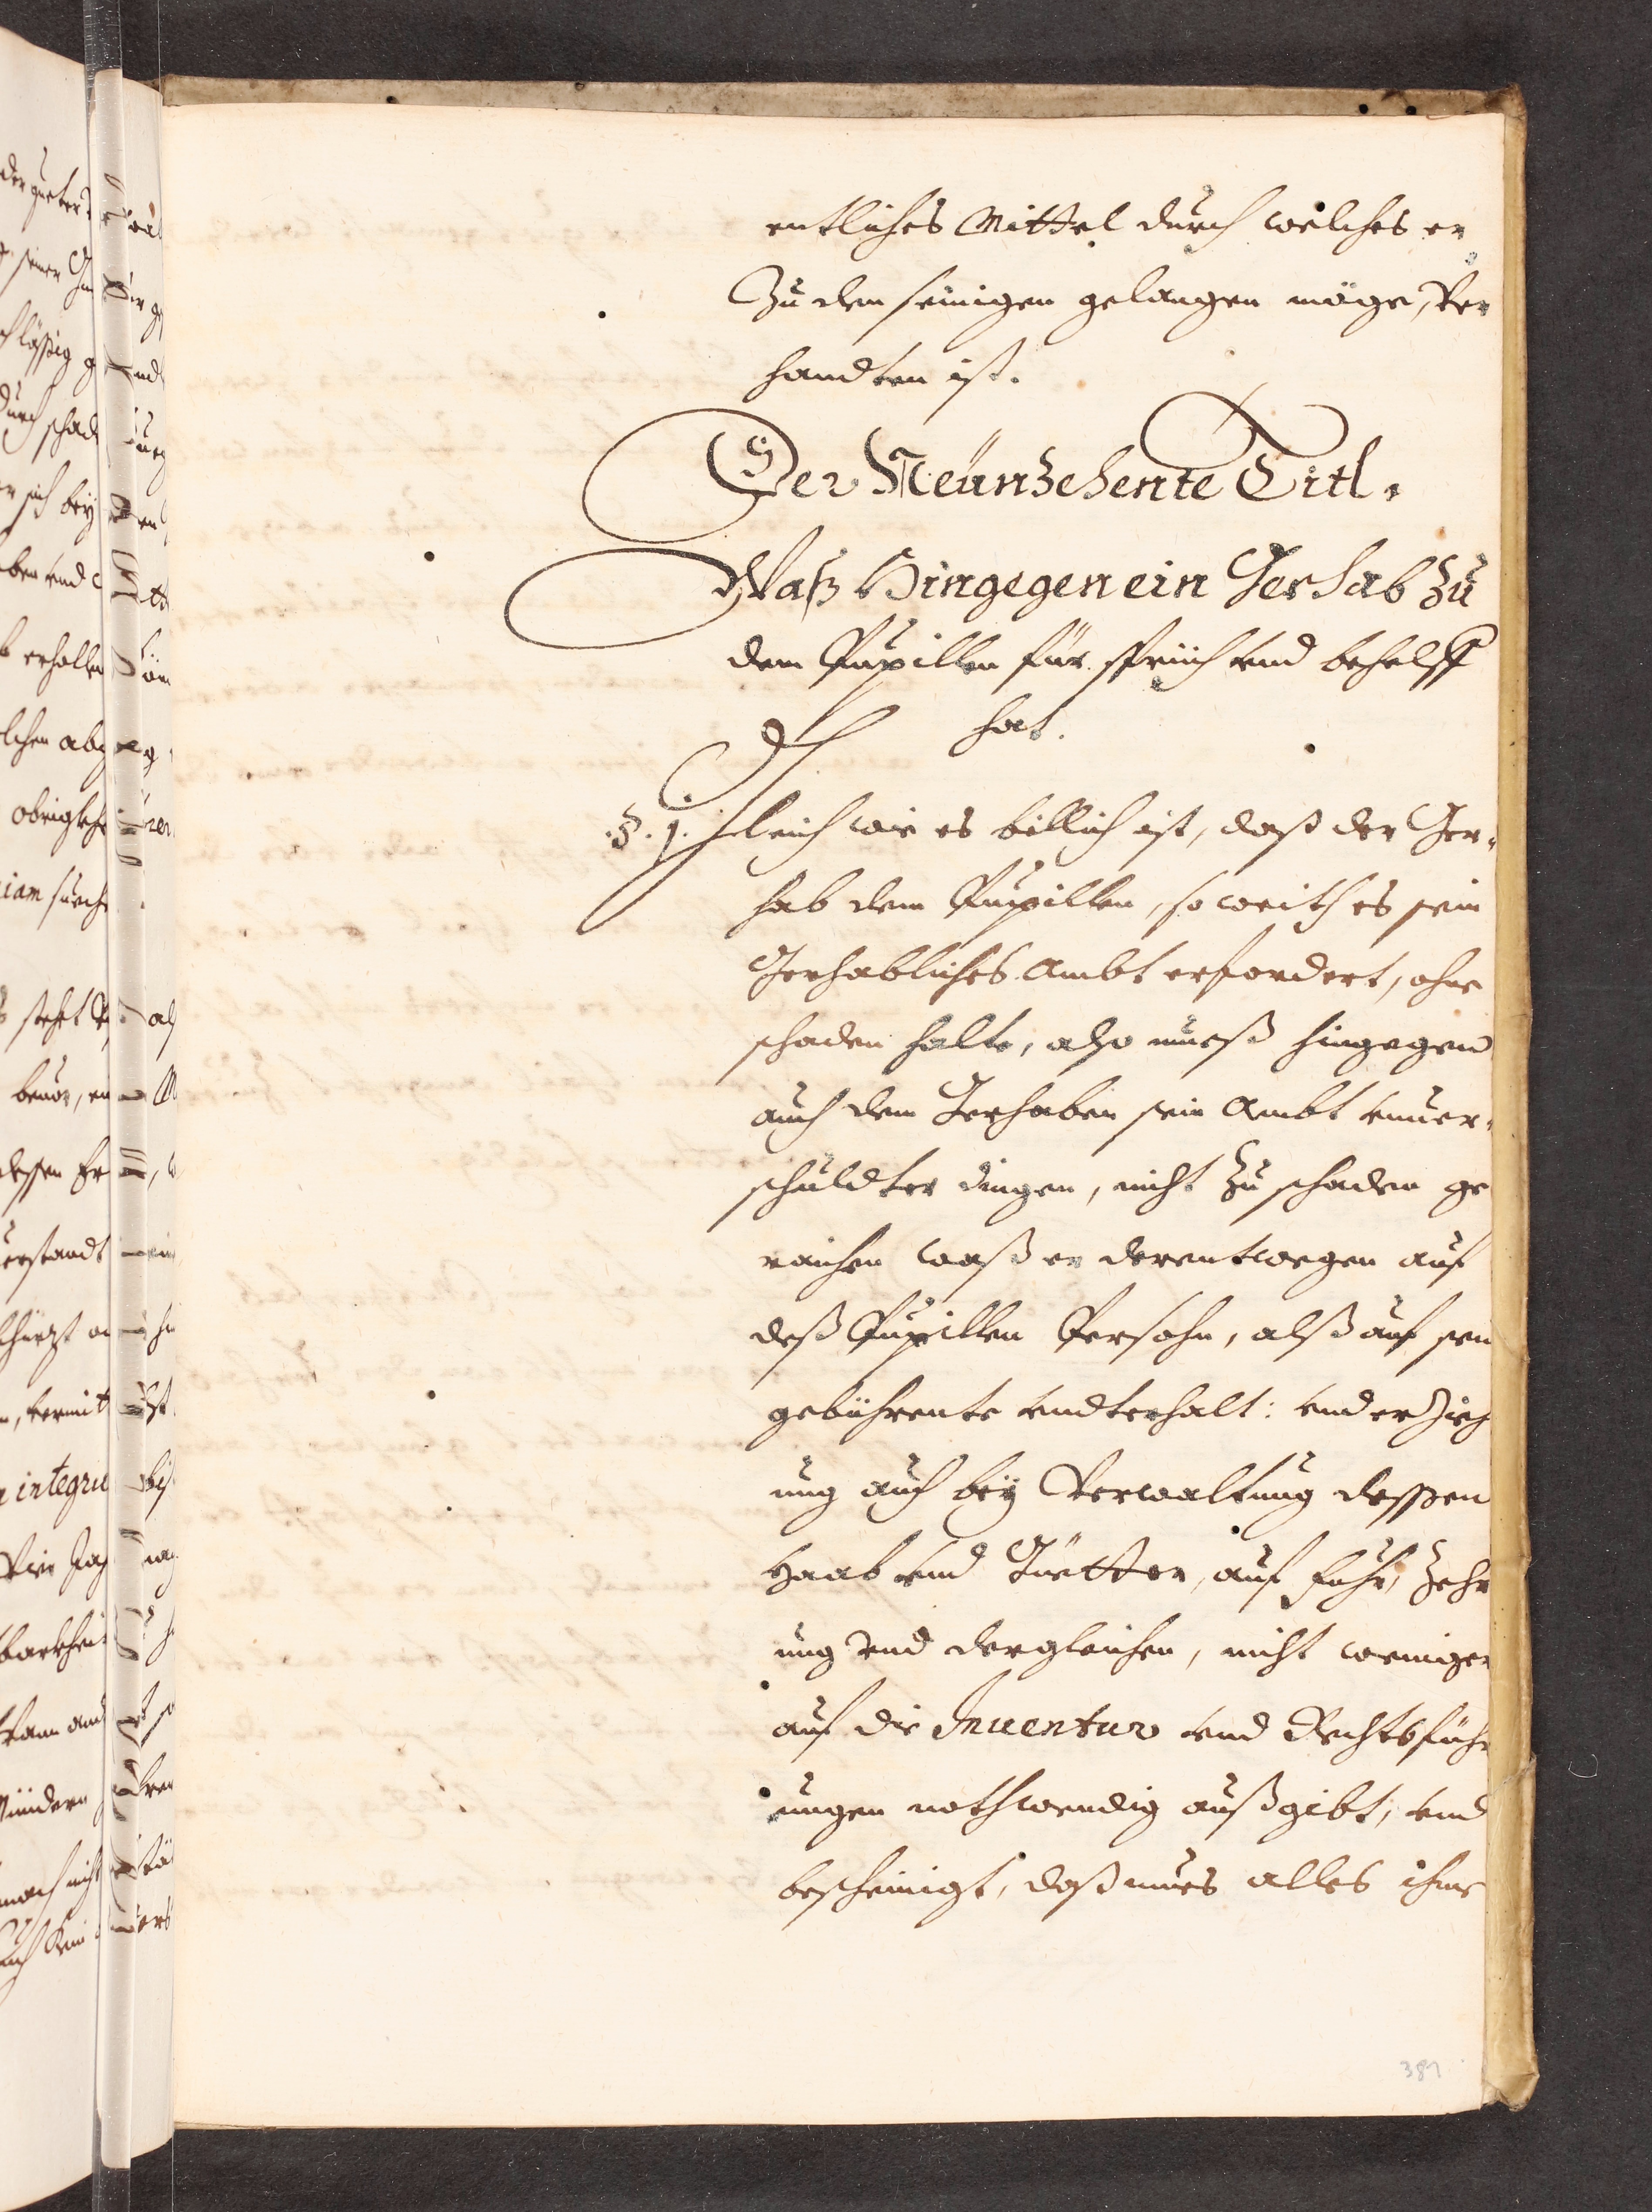 entliches Mittel durch welches er
Zu dem seinigen gelangen möge, ver
handten ist.
Der Neünzehente Titl.
Waß Hingegen ein Gerhab zu
dem Pupillen für sprüch vnd behelff
hat.
§. 1. Gleich wie es billich ist, daß der Ger-
hab dem Pupillen, so weith es sein
Gerhabliches Ambt erfordert, ohne
schaden halte, also mueß hingegen
auch dem Gerhaben sein Ambt vnuer-
schuldter dingen, nicht zu schaden ge
raichen waß er derentwegen auf
deß Pupillen Persohn, alß auf sein
gebührente vndterhalt: vnd erzieh
ung auch bey Verwaltung dessen
Haab vnd Güetter, auf fuhr, Zehr
ung vnd dergleichen, nicht weniger
auf die Inuentur vnd Rechtsführ
ungen nothwendig außgibt, vnd
bescheinigt, daß mues alles ihme
381